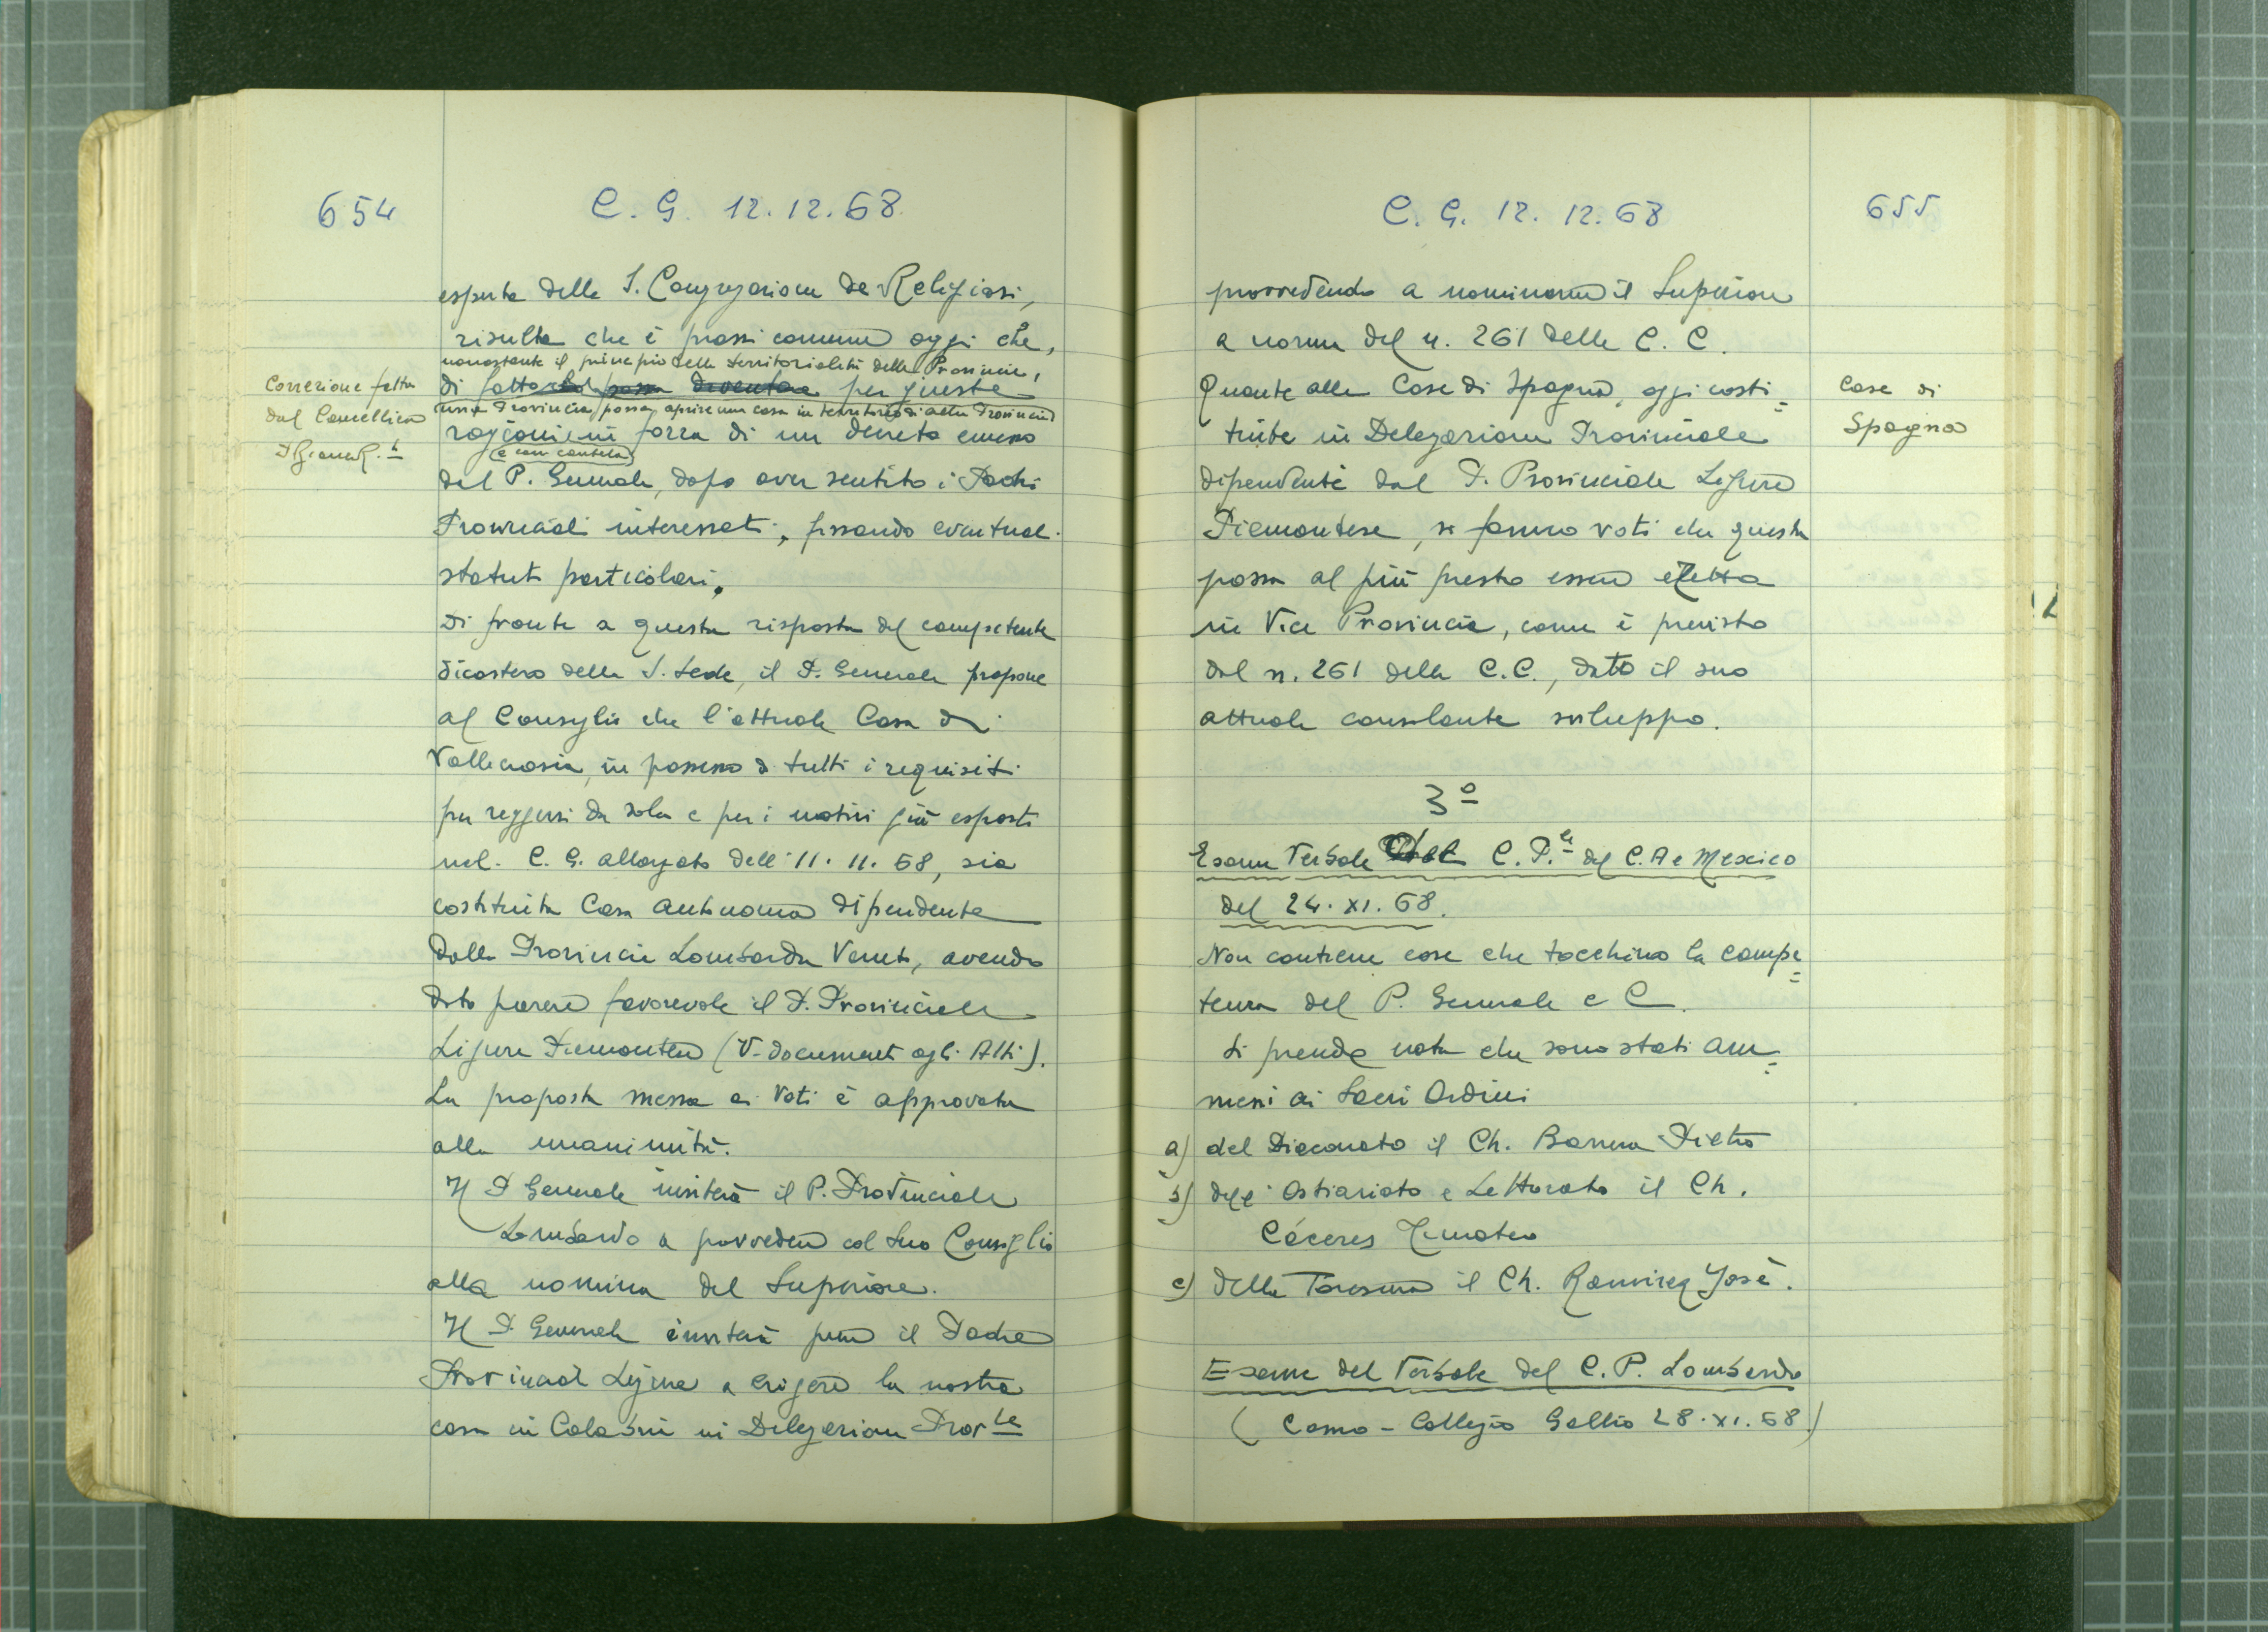 654
C. G. 12.12.68
esperta della S. Congregazione de Religiosi,
risulta che è prassi comune oggi che,
nonostante il principio della territorialità delle Provincie,
di fatto possa diventare per queste
una Provincia possa aprire una casa in territorio di altra Provincia
ragioni in forza di un decreto emesso
(e con cautela)
dal P. Generale, dopo aver sentito i Padri
Provinciali interessati, fissando eventuali
statuti particolari.
Correzione fatta
dal Cancelliere
Di fronte a questa risposta del competente
dicastero della S. Sede, il P. Generale propone
al Consiglio che l'attuale Casa di
Vallecrosia, in possesso di tutti i requisiti
per reggersi da sola e per i motivi già esposti
nel C. G. allargato dell' 11. 11. 68, sia
costituita Casa autonoma dipendente
dalla Provincia Lombardo Veneta, avendo
dato parere favorevole il P. Provinciale
Ligure Piemontese (V. documenti agli Atti).
La proposta messa ai voti è approvata
alla unanimità.
Il P Generale inviterà il P. Provinciale
Lombardo a provvedere col suo Consiglio
alla nomina del Superiore.
Il P. Generale inviterà pure il Padre
Provinciale Ligure a erigere la nostra
casa in Calabria in Delegazione Prov.le
C. G. 12. 12. 68
655
provvedendo a nominarne il Superiore
a norma del n. 261 delle C. C.
Quante alle Case di Spagna, oggi costi=
tuite in Delegazione Provinciale
dipendente dal P. Provinciale Ligure
Piemontese, si fanno voti che questa
possa al più presto essere eretta
in Vice Provincia, come è previsto
dal n. 261 delle C.C., dato il suo
attuale consolante sviluppo.
Case di
Spagna
3º
Esame Verbale C. P.le del C. A e Mexico
del 24. XI. 68.
Non contiene cose che tocchino la compe=
tenza del P. Generale e C.
Si prende nota che sono stati am=
messi ai Sacri Ordini
a) del Diaconato il Ch. Pietro
b) dell' Ostiariato e Lettorato il Ch.
Cáceres Timoteo
c) della Tonsura il Ch. Ramirez José.
Esame del Verbale del C. P. Lombardo
(Como - Collegio Gallio 28. XI. 68)